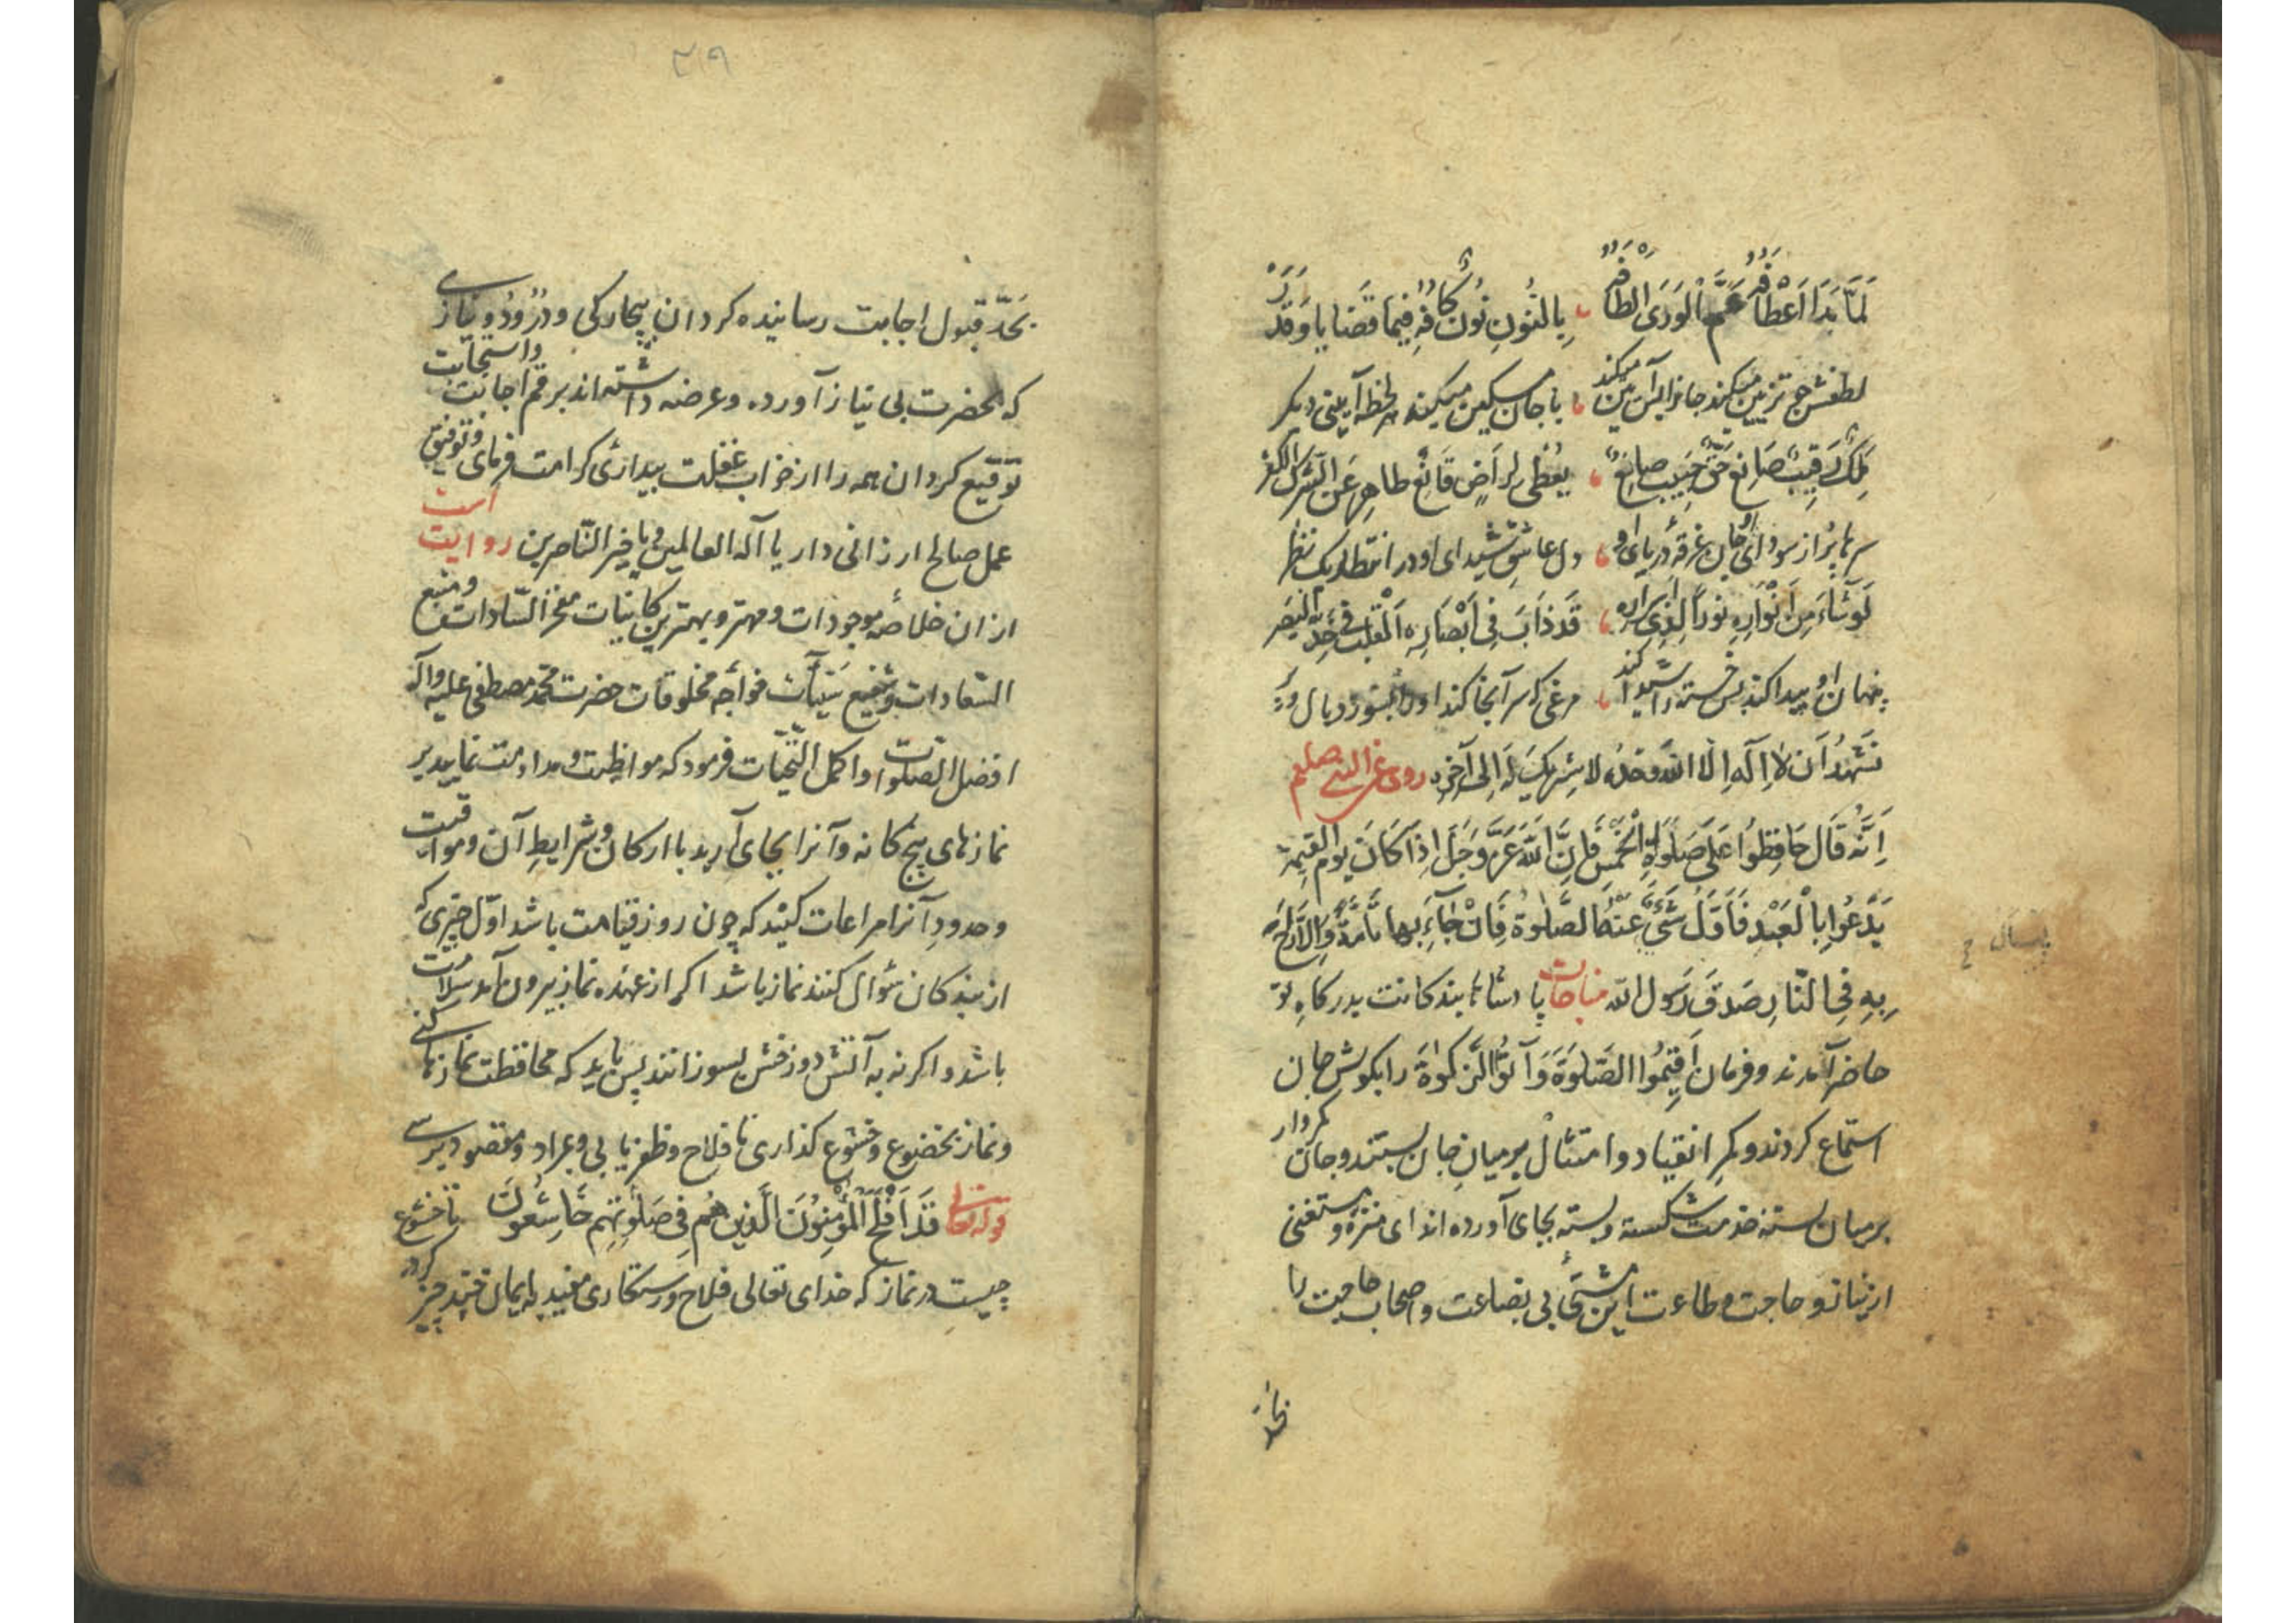 لَمَّا بَدَا اَعْطَافُهُ عَمَّ الْوَرَى اَلْطَافُهُ بِالنُّونِ نُونُ كَافُهُ فِيمَا قَضَايَا وَقَدَرْ
لطفش چو تزیین میکند جانرا به آیین میکند با جان مسکین میکند هر لحظه آیینی دیکر
مَلِكٌ رَقِيبٌ صَانِعٌ حَقٌّ حَبِيبٌ صانِعٌ يُعْطِي لِرَاضٍ قَانِعٌ طاهِرٍ عَنِ الشِّرْكِ الْكُفْرِ
سرها پُر از سودای او جان غرقهٔ دریای او دل عاشق شیدای او در انتظار یک نظر
لَوْ شَاءَ مِنْ اَنْوَارِهِ نُوراً لِذِي اَسْرَارِهِ قَدْ ذَابَ فِي اَبْصَارِهِ اَلْقَلْبُ فِي حَدِّ الْبَصَر
پنهان او پیدا کند بس خسته را شیدا کند مرغی که سر آنجا کند او را بسوزد بال و پَر
نَشْهَدُ اَنْ لَا اِلَهَ اِلَّا اللهُ وَحْدَهُ لا شَرِيكَ لَهُ اِلى آخِرِهِ روی عن النبی صلعم
اَنَّهُ قَالَ حَافِظُوا عَلَى صَلَوةِ الْخَمْسِ فَاِنَّ اللهَ عَزَّ وَجَلَّ اِذَا كَانَ يَوْمُ الْقِيمَةِ
يَدْعُوا بِالْعَبْدِ فَاَوَّلُ شَيْءٍ عَنْهُ الصَّلوةُ فَاِنْ جَآءَ بِها تَامَّةً وَاِلَّا زُخَّ
بِهِ فِي النَّارِ صَدَقَ رَسُولُ الله مناجات پادشاها بندکانت بدرکاهِ تو
حاضر آمدند و فرمان اَقِيمُوا الصَّلوةَ وَآتُوا الزَّكوةَ را بکوش جان
استماع کردند و کمرِ انقیاد و امتثال بر میانِ جان بستند و جان کمردار
بر میان بسته خدمت شکسته و بسته بجای آورده اند ای منزه و مستغنی
از نیاز و حاجت و طاعت این مشتی بی بضاعت و اصحاب حاجت را
بحدّ
پسال ح
۲۹
بَحَدّ قبول اجابت رسانیده کردان بیچارکی و درود و نیازی
که بحضرت بی نیاز آورده و عرضه داشته اند برقم اجابت و استجابت
توقیع کردان همه را از خواب غفلت بیداری کرامت فرمای و توفیق
عمل صالح ارزانی دار یا آله العالمین و یا خیر النّاصرین روایت است
از ان خلاصهٔ موجودات و مهتر و بهترین کاینات مفخر السّادات و منبع
السّعادات و شفیع سَیّئآت خواجه مخلوقات حضرت محمّد مصطفی علیه وآله
افضل الصلوات و اکمل التحیّات فرمود که مواظبت و مداومت نمایید بر
نمازهای پنج کانه و آنرا بجای آرید با ارکان و شرایطِ آن و مواقیت
و حدودِ آنرا مراعات کنید که چون روز قیامت باشد اوّل چیزی که
از بندکان سُوال کنند نماز باشد اکر از عهده نماز بیرون آمد سلامت
باشد و اکرنه به آتش دوزخش بسوزانند پس باید که محافظت نمازها کنی
و نماز بخضوع و خشوع کذاری تا فلاح و ظفر یابی و بمراد و مقصود برسی
قوله تعالی قَدْ اَفْلَحَ الْمُؤْمِنُونَ الَّذِينَ هُمْ فِي صَلوتِهِمْ خَاشِعُونَ تا خشوع
چیست در نماز که خدای تعالی فلاح و رستکاری